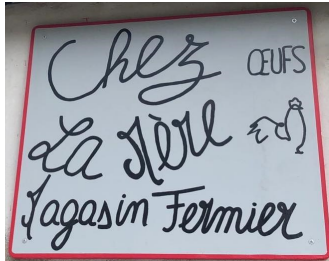 Chez ŒUFS
La Mère
Magasin Fermier